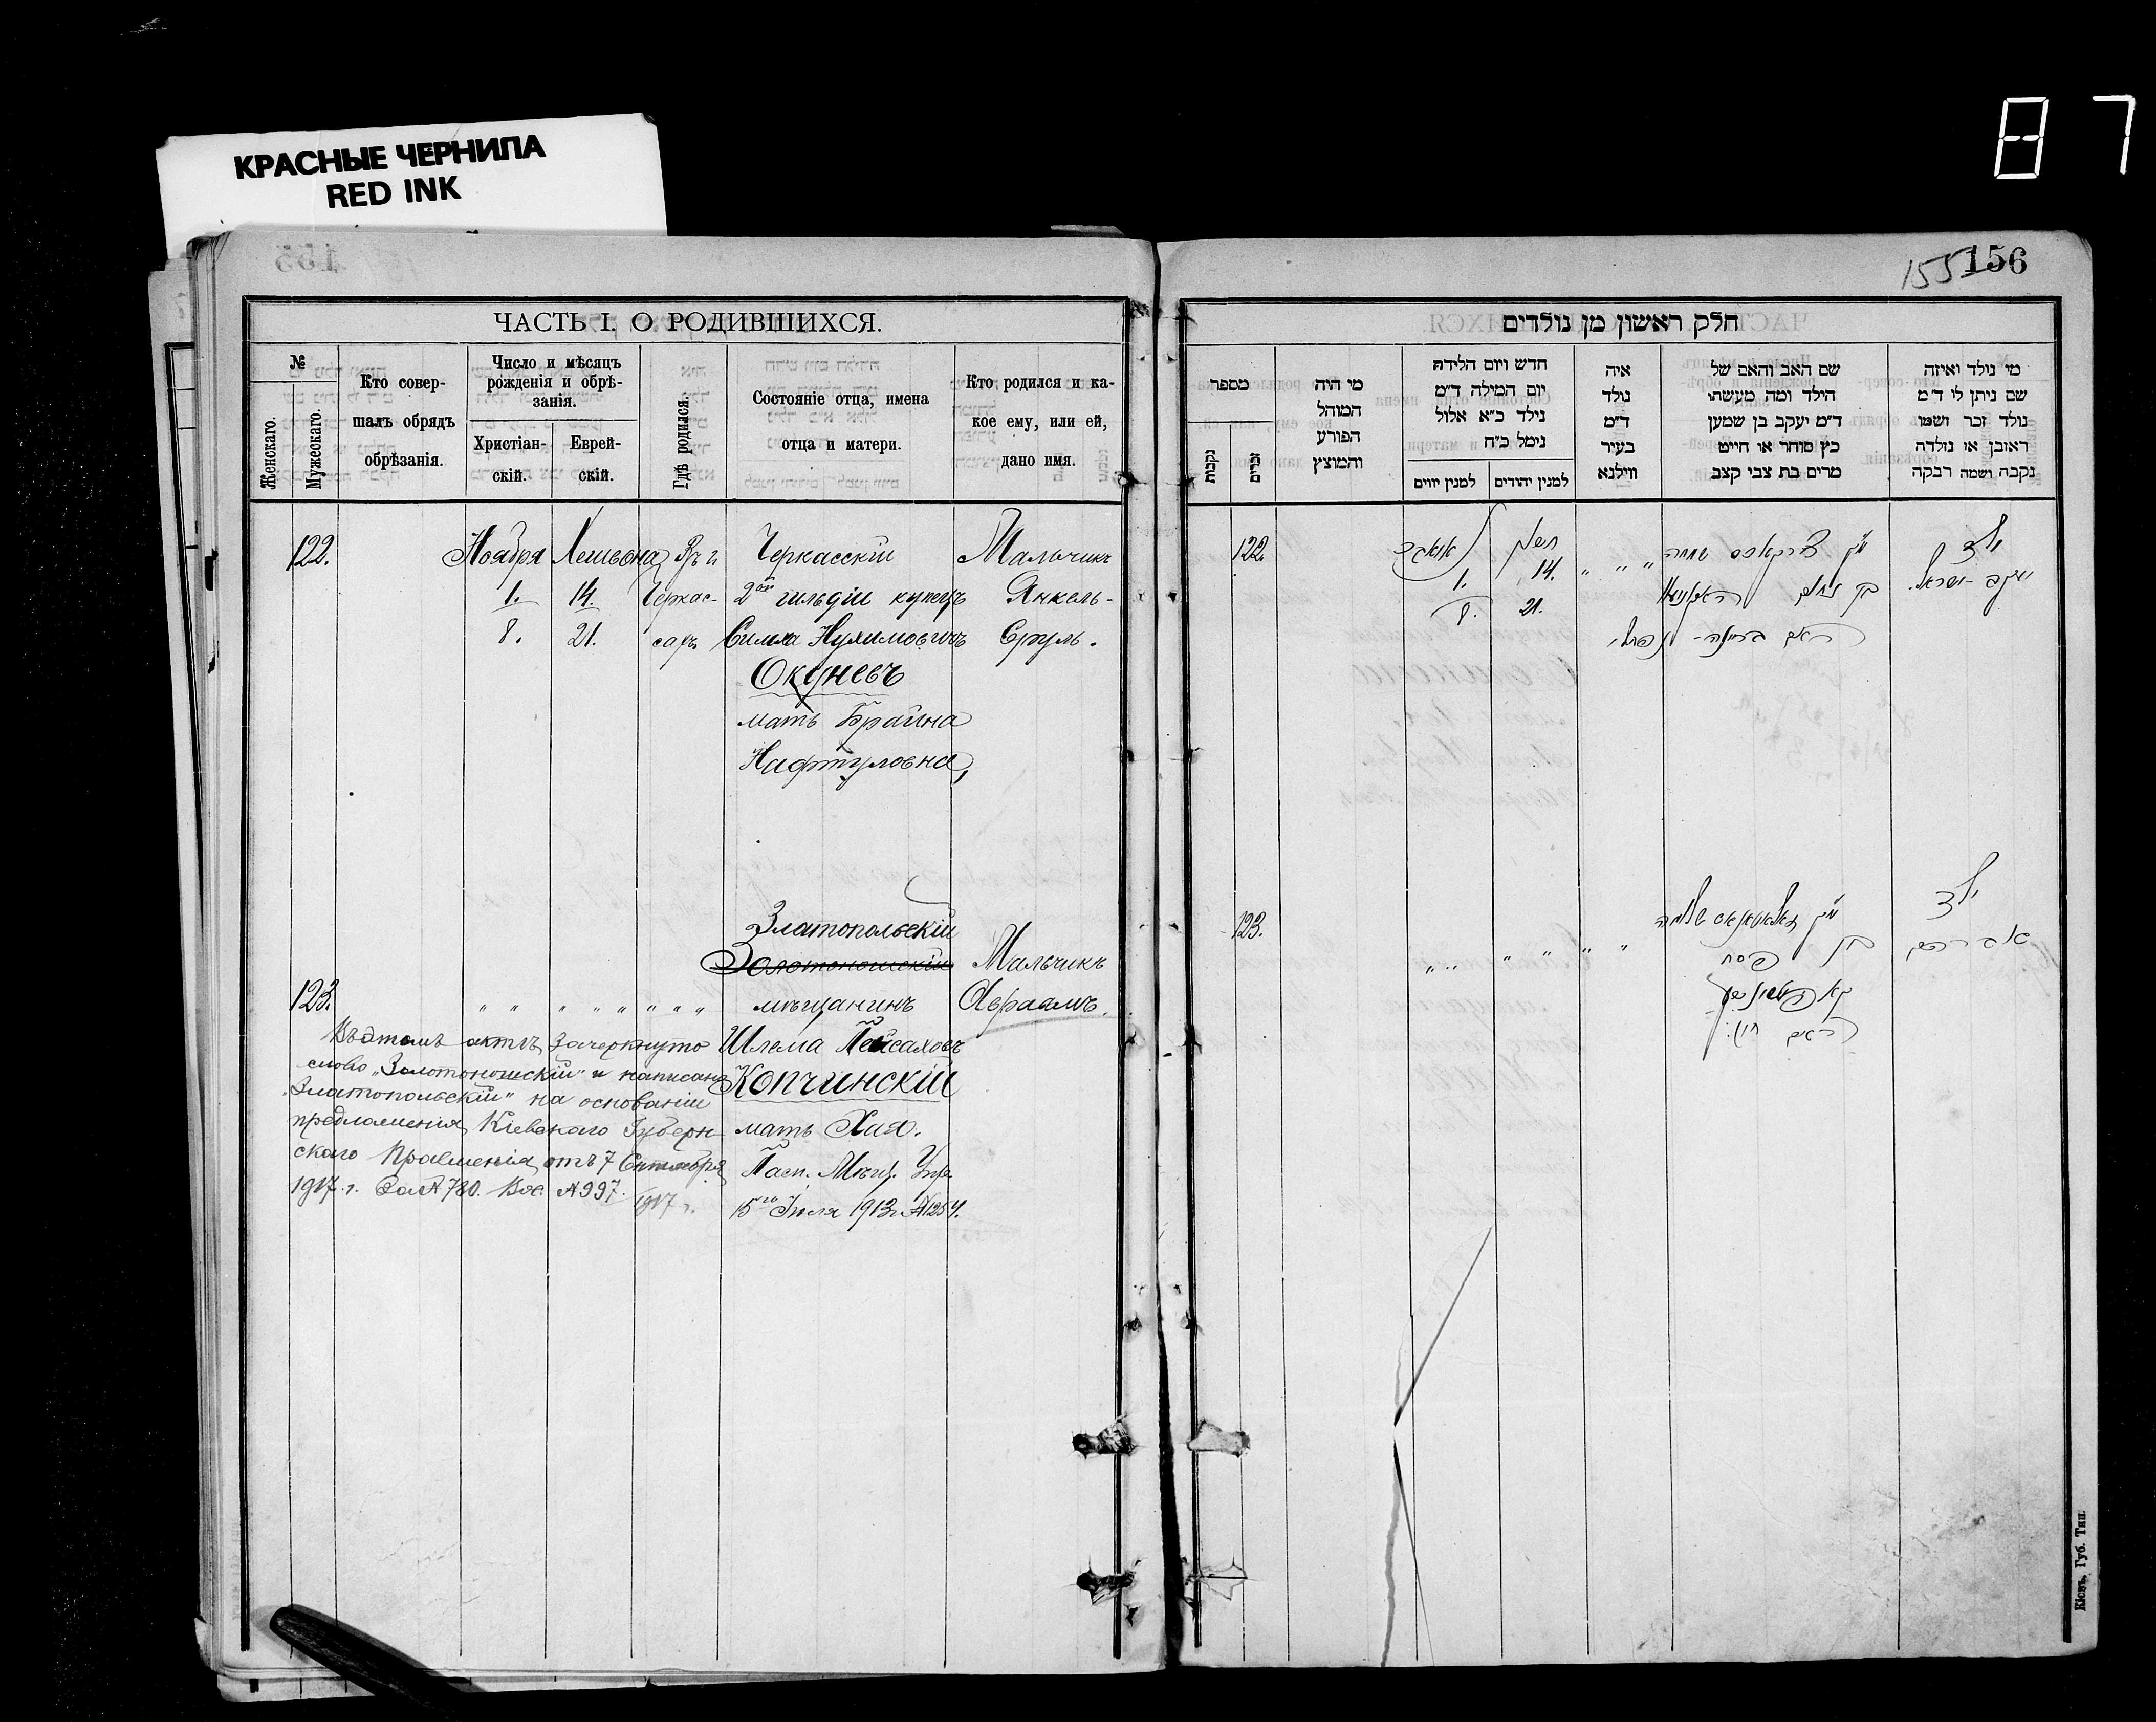 87
КРАСНЫЕ ЧЕРНИЛА
RED INK
155 156
ЧАСТЬ I. О РОДИВШИХСЯ.
№
Женскаго.
Мужескаго.
Кто совер-
шалъ обрядъ
обрѣзанія.
Число и мѣсяцъ
рожденія и обрѣ-
занія.
Христіан-
скій.
Еврей-
скій.
Гдѣ родился.
Состояніе отца, имена
отца и матери.
Кто родился и ка-
кое ему, или ей,
дано имя.
122. Ноября Хешвона Въ г. Черкасскій Мальчикъ
1. 14. Черкас- 2ой гильдіи купецъ Янкель-
8. 21. сахъ Симха Нухимовичъ Сруль.
Окуневъ
мать Брайна
Нафтуловна,
Златопольскій
Золотоношскій Мальчикъ
123. " " " " " " " " мѣщанинъ Авраамъ.
Въ этомъ актѣ зачеркнуто Шлема Пейсаховъ
слово „Золотоношскій" и написано Копчинскій
„Златопольскій" на основаніи
предложенія Кіевскаго Губерн- мать Хая.
скаго Правленія отъ 7 Сентября Пасп. Мѣщ. Упр.
1917 г. за № 780. Вх. № 997. 1917 г. 15го Іюля 1913 г. № 1254.
חלק ראשון מן נולדים
מספר
נקבות
זכרים
מי היה
המוהל
הפורע
והמוצץ
חדש ויום הלידה
יום המילה ד״מ
נילד כ״א אלול
נימל כ״ח
למנין יווים
למנין יהודים
איה
נולד
ד״מ
בעיר
ווילנא
שם האב והאם של
הילד ומה מעשהו
ד״מ יעקב בן שמען
כץ סוחר או חייט
מרים בת צבי קצב
מי נולד ואיזה
שם ניתן לו ד״מ
נולד זכר ושמו
ראובן או נולדה
נקבה ושמה רבקה
ילד
122.
1. 14.
8. 21.
יעקב-ישראל.
ילד
123.
אברהם
בן פסח
האם חי׳
Кіевъ, Губ. Тип.